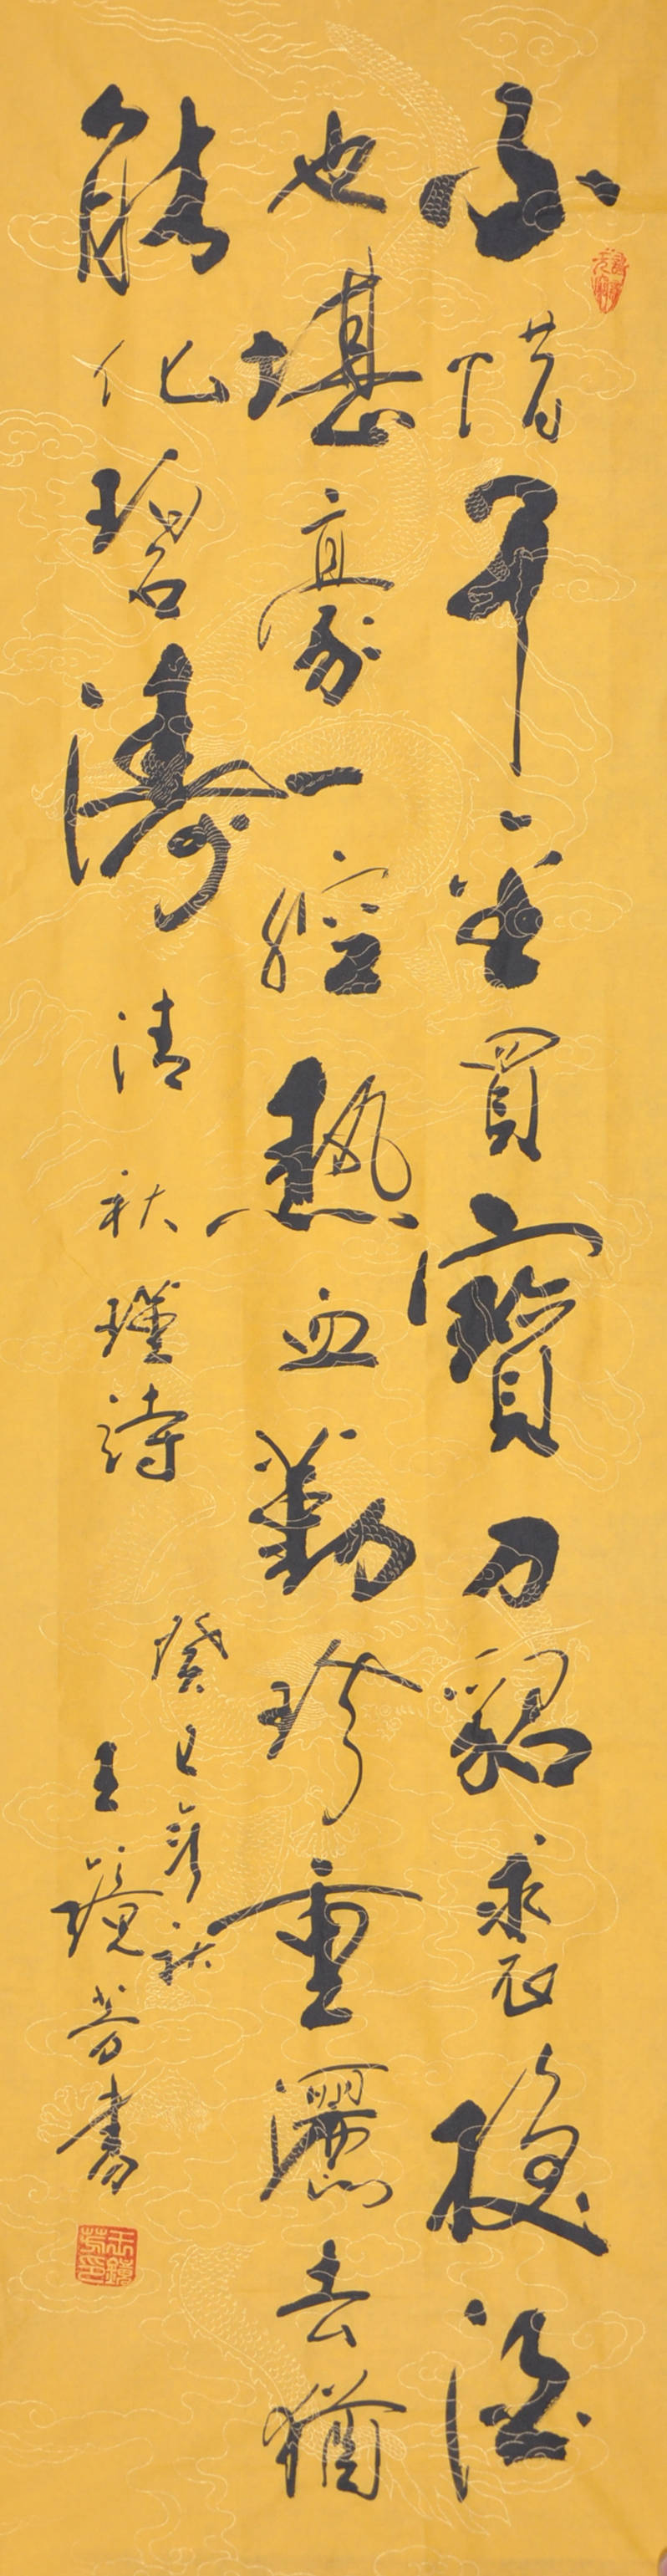 不惜千金買寶刀貂裘換酒
也堪豪一腔熱血勤珍重灑去猶
能化碧濤 清 秋瑾詩
癸巳年秋
王鏡芳書
王鏡芳印